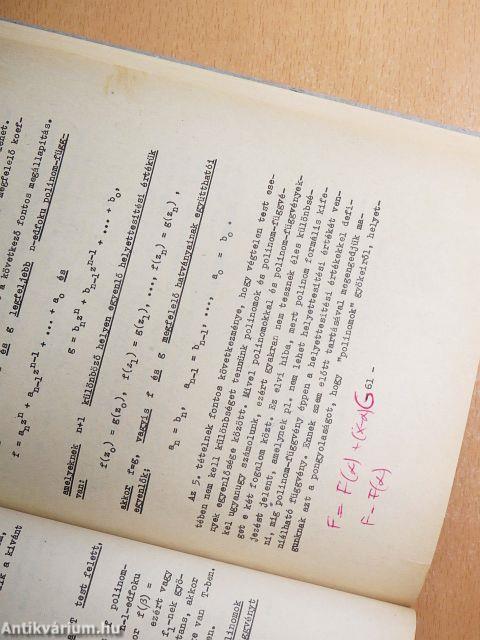 a következő fontos megállapítás.
és g legfeljebb n-edfoku polinom-függ-
f = aₙzⁿ + aₙ₋₁zⁿ⁻¹ + ... + a₀ és
g = bₙzⁿ + bₙ₋₁zⁿ⁻¹ + ... + b₀,
amelyeknek n+1 különböző helyen egyenlő helyettesitési értékük
van:
f(z₀) = g(z₀), f(z₁) = g(z₁), ..., f(zₙ) = g(zₙ) ,
akkor f=g, vagyis f és g megfelelő hatványainak együtthatói
egyenlők:
aₙ = bₙ, aₙ₋₁ = bₙ₋₁, ..., a₀ = b₀ .
Az 5. tételnek fontos következménye, hogy végtelen test ese-
tében nem kell különbséget tennünk polinomok és polinom-függvé-
nyek egyenlősége között. Mivel polinomokkal és polinom-függvények-
kel ugyanugy számolunk, ezért gyakran nem tesznek éles különbsé-
get e két fogalom közt. Ez elvi hiba, mert polinom formális kife-
jezést jelent, amelynek pl. nem lehet helyettesitési értékét ven-
ni, mig polinom-függvény éppen a helyettesitési értékekkel defi-
niálható függvény. Ennek szem előtt tartásával megengedjük ma-
gunknak ezt a pongyolaságot, hogy "polinomok" gyökeiről, helyet-
61 -
F = F(α) + (x-α)G
F - F(α)
ik a kivánt
T test felett,
polinom-
-1-edfoku
or f(β) =
ezért vagy
-nek gyö-
tans, akkor
ke van T-ben.
linomok
ggvényt
Antikvárium.hu